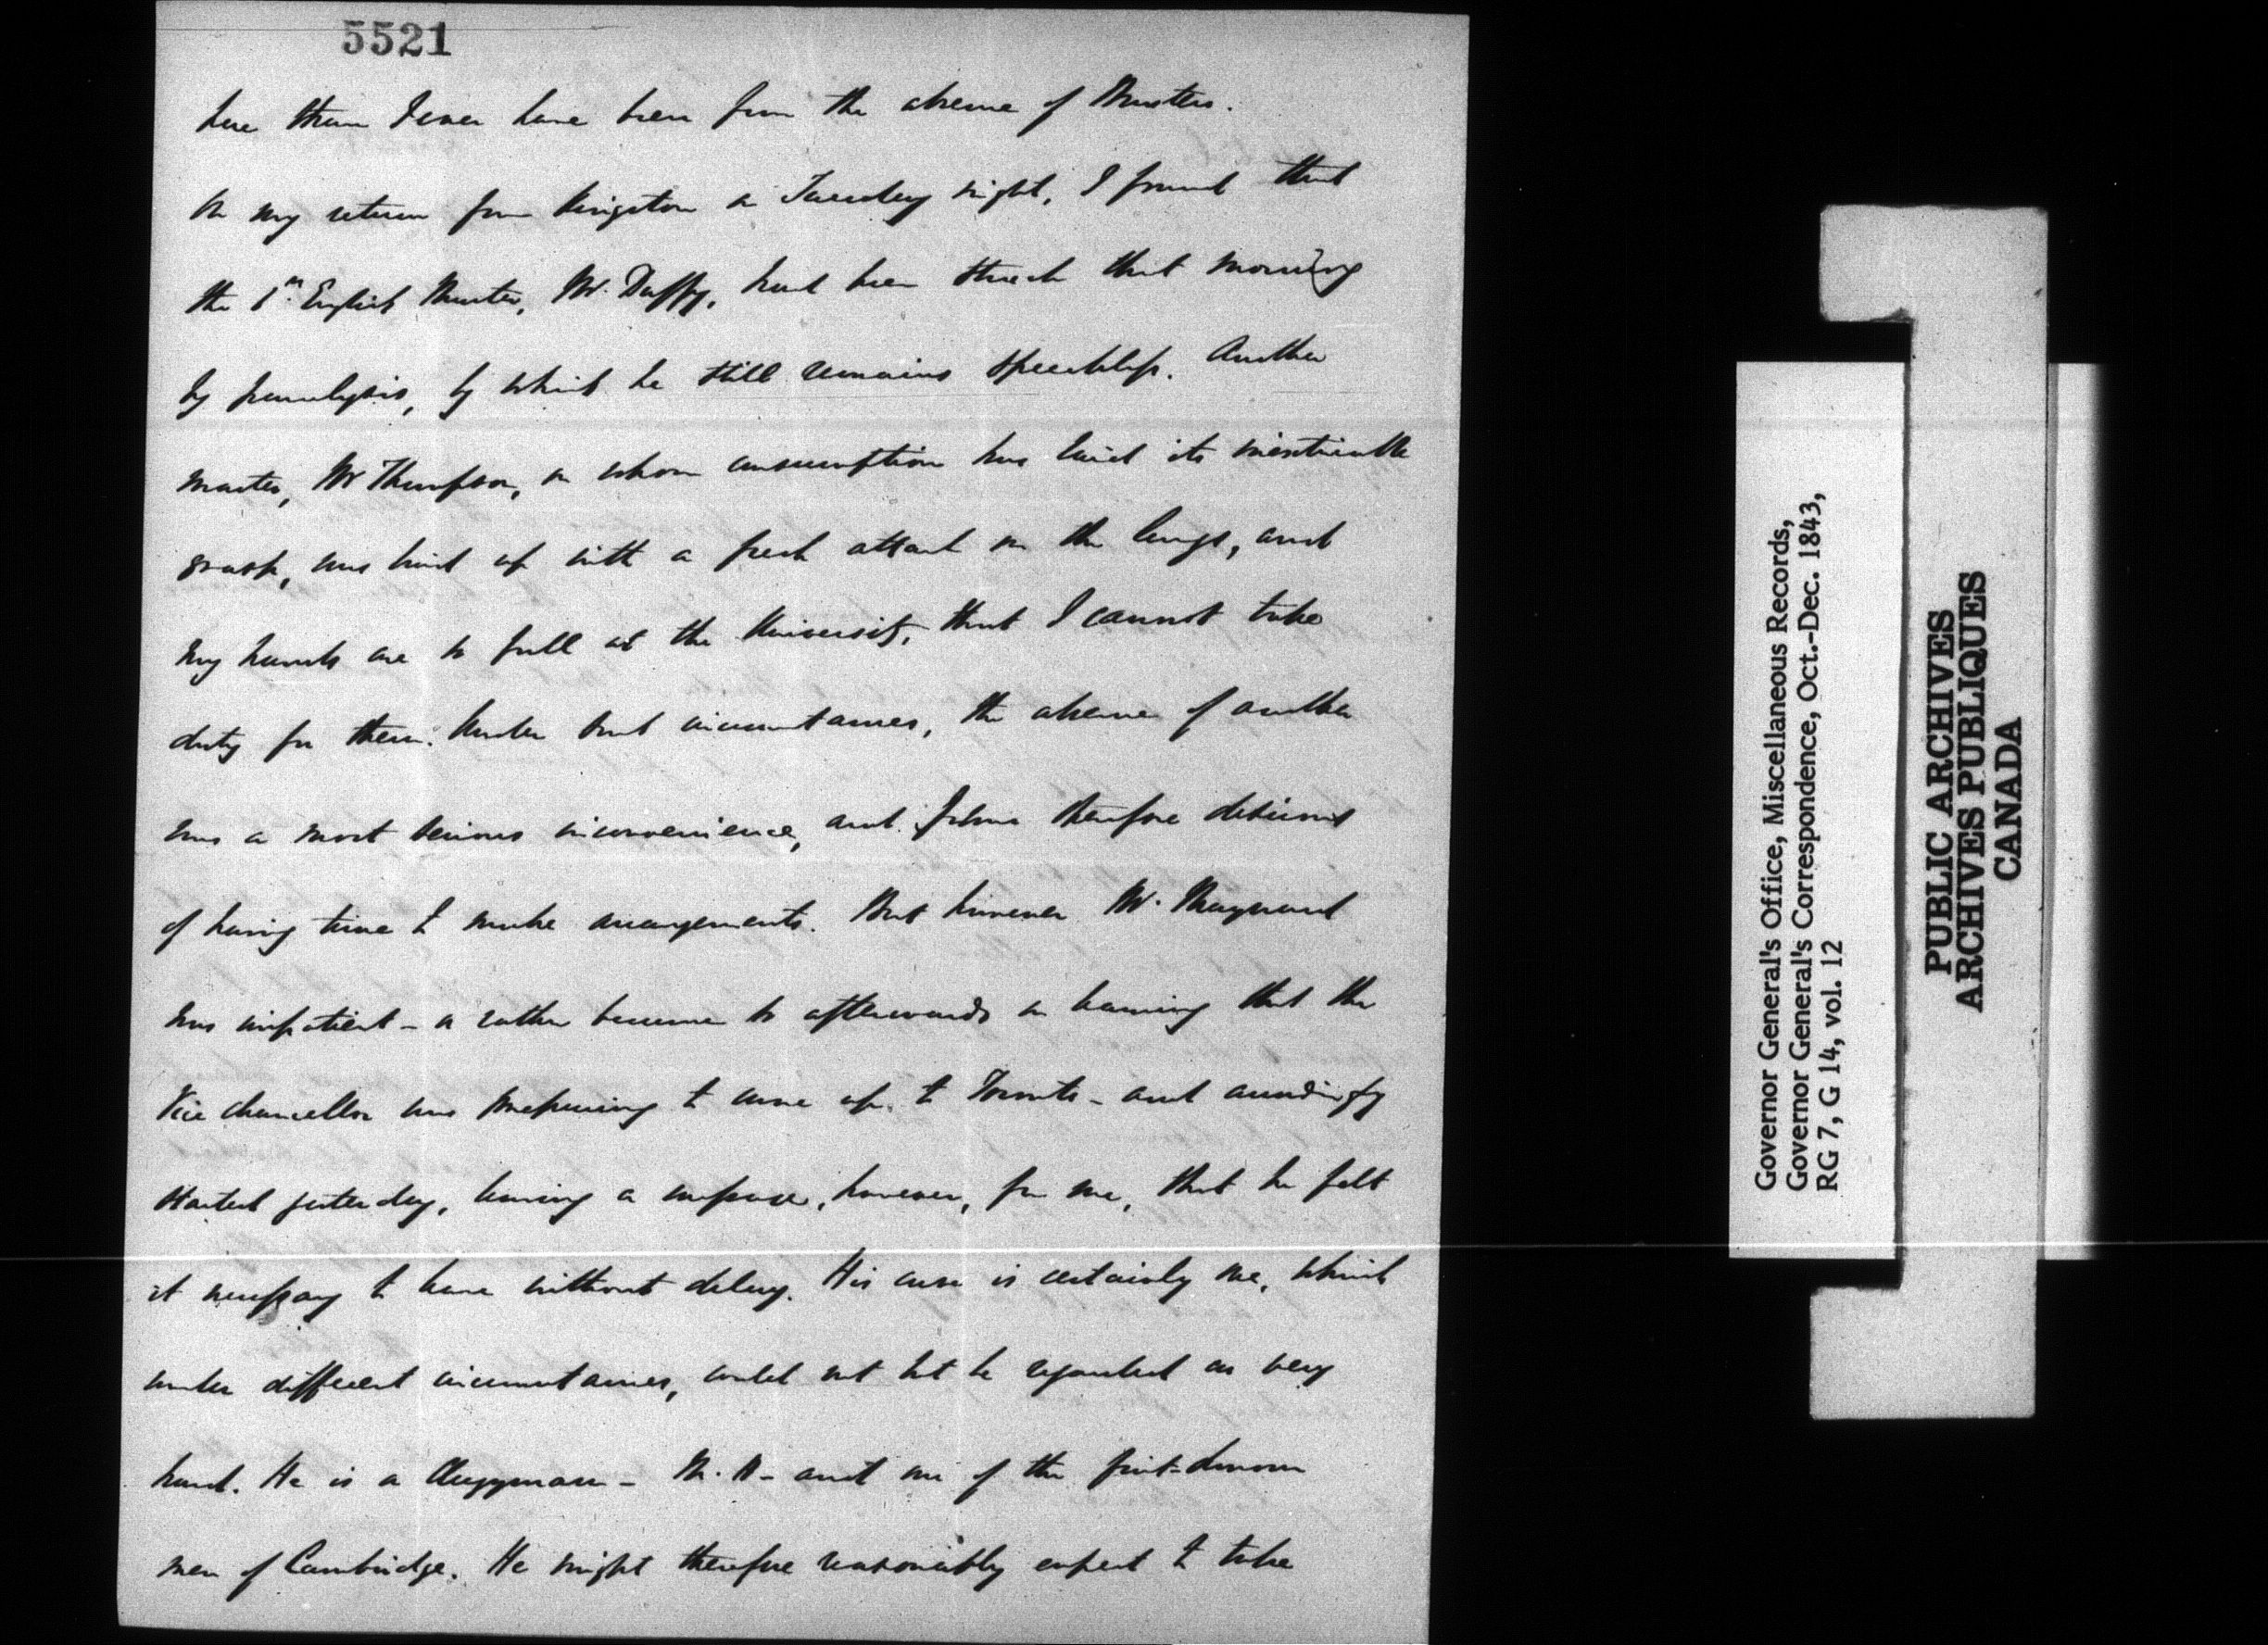 5521
here than I ever have been from the absence of Masters.
On my return from Kingston on Tuesday night, I found that
the 1st English Master, Mr. Duffy, had been struck that morning
by paralysis, by which he still remains speechless. Another
master, Mr Thompson, on whom consumption has laid its inextricable
grasp, was laid up with a fresh attack on the lungs, and
my hands are so full at the University, that I cannot take
duty for them. Under such circumstances, the absence of another
was a most serious inconvenience, and I was therefore desirous
of having time to make arrangements. But however Mr. Maynard
was impatient – or rather became so afterwards on learning that the
Vice Chancellor was preparing to come up to Toronto – and accordingly
started yesterday, leaving a message, however, for me, that he felt
it necessary to leave without delay. His case is certainly one, which
under different circumstances, could not but be regarded as very
hard. He is a Clergyman – M.A – and one of the first-honour
men of Cambridge. He might therefore reasonably expect to take
Governor General's Office, Miscellaneous Records,
Governor General's Correspondence, Oct.-Dec. 1843,
RG 7, G 14, vol. 12
PUBLIC ARCHIVES
ARCHIVES PUBLIQUES
CANADA